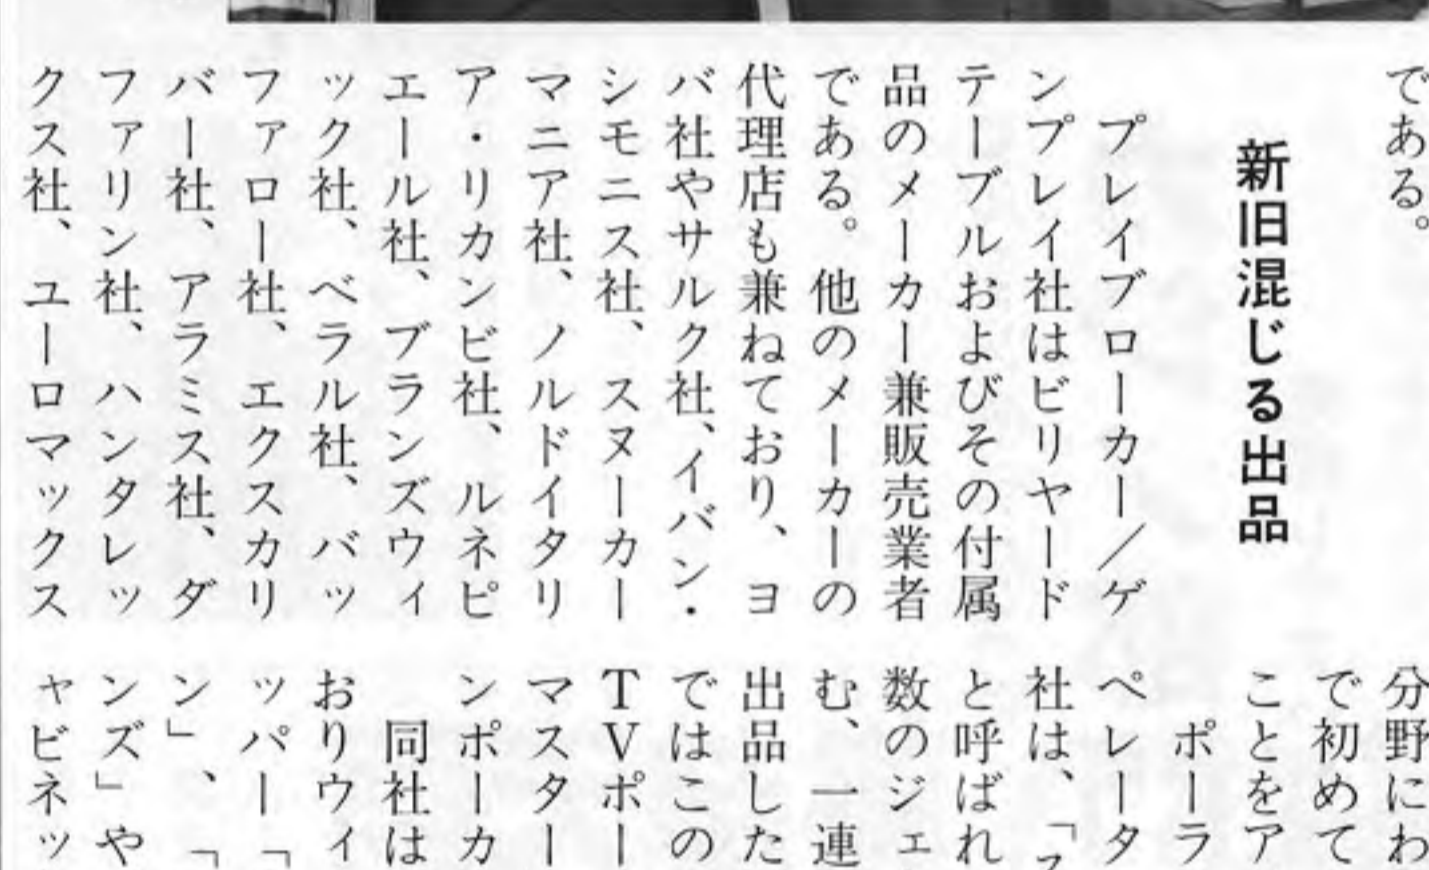 である。
新旧混じる出品
プレイブローカー／ゲ
ンプレイ社はビリヤード
テーブルおよびその付属
品のメーカー兼販売業者
である。他のメーカーの
代理店も兼ねており、ヨ
バ社やサルク社、イバン・
シモニス社、スヌーカー
マニア社、ノルドイタリ
ア・リカンビ社、ルネピ
エール社、ブランズウィ
ック社、ベラル社、バッ
ファロー社、エクスカリ
バー社、アラミス社、ダ
ファリン社、ハンタレッ
クス社、ユーロマックス
分野にわ
で初めて
ことをア
ポーラ
ペレータ
社は、「
と呼ばれ
数のジェ
む、一連
出品した
ではこの
TVポー
マスター
ンポーカ
同社は
おりウィ
ッパー「
ン」、「
ンズ」や
ャビネッ